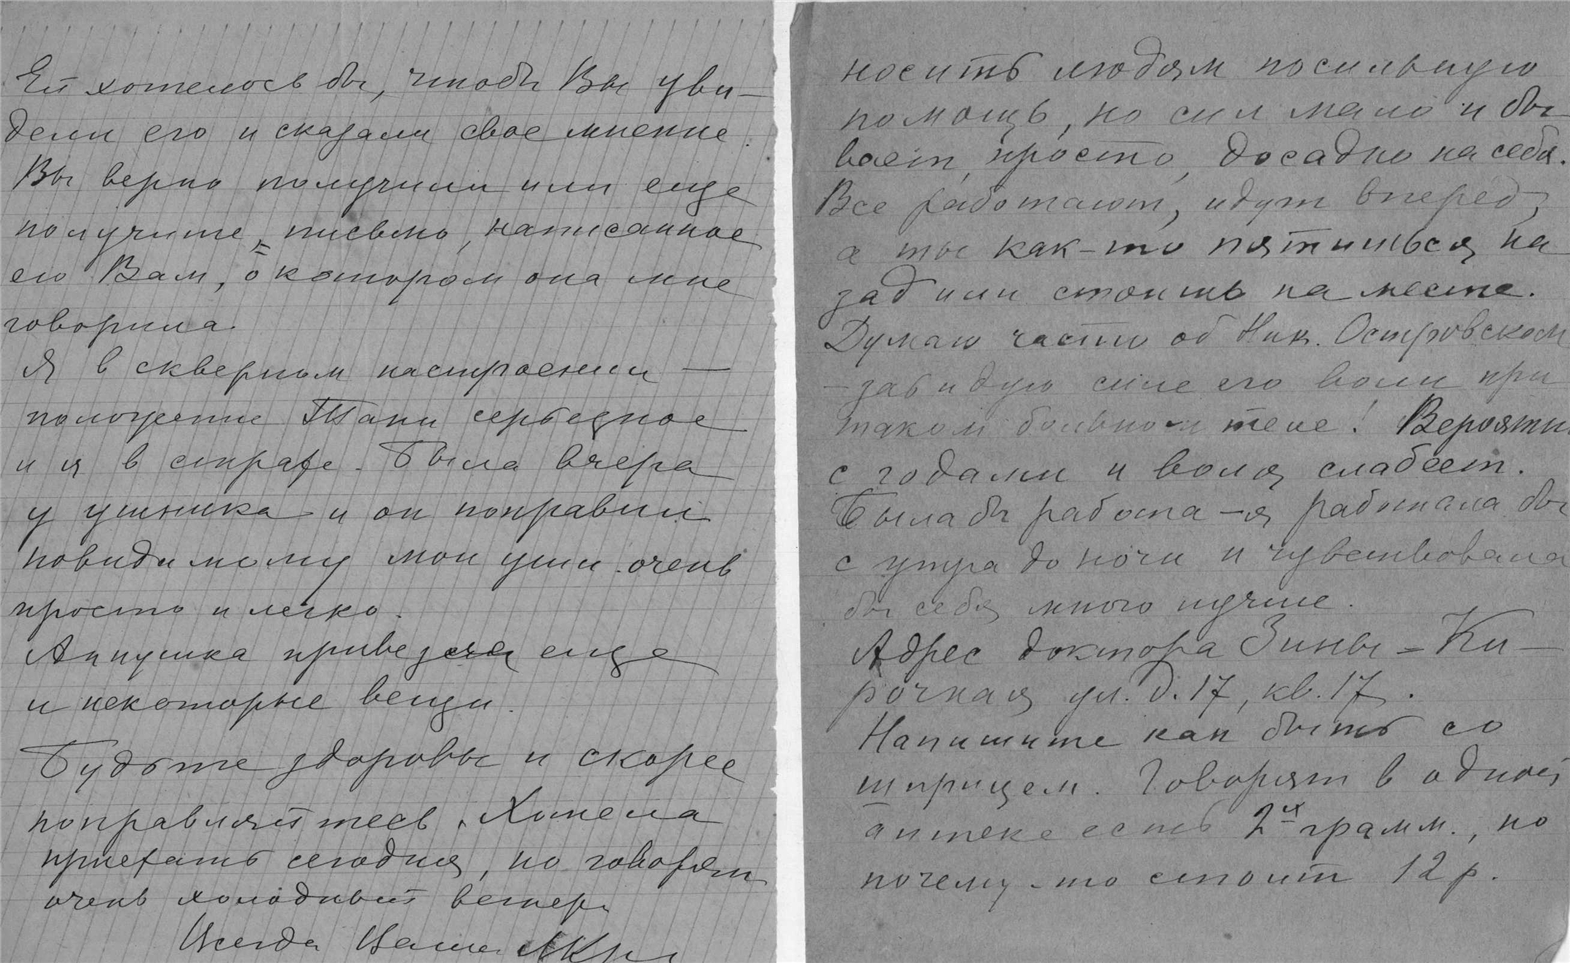 Ей хотелось бы, чтобы Вы уви-
дели его и сказали свое мнение.
Вы верно получили или еще
получите письмо, написанное
ею Вам, о котором она мне
говорила.
Я в скверном настроении —
положение Тани серьезное
и я в страхе. Была вчера
у ушника и он поправил
повидимому мои уши очень
просто и легко.
Аннушка привезла еще
и некоторые вещи.
Будьте здоровы и скорее
поправляйтесь. Хотела
приехать сегодня, но говорят
очень холодный ветер.
Всегда Ваша
носить людям посильную
помощь, но сил мало и бы-
вает, просто, досадно на себя.
Все работают, идут вперед,
а ты как-то пятишься на
зад или стоишь на месте.
Думаю часто об Ник. Островском
— завидую силе его воли при
таком больном теле! Вероятно
с годами и воля слабеет.
Была бы работа — я работала бы
с утра до ночи и чувствовала
бы себя много лучше.
Адрес доктора Зины - Ки-
рочная ул. д. 17, кв. 17.
Напишите как быть со
шприцем. Говорят в одной
аптеке есть 2х грамм., но
почему-то стоит 12 р.